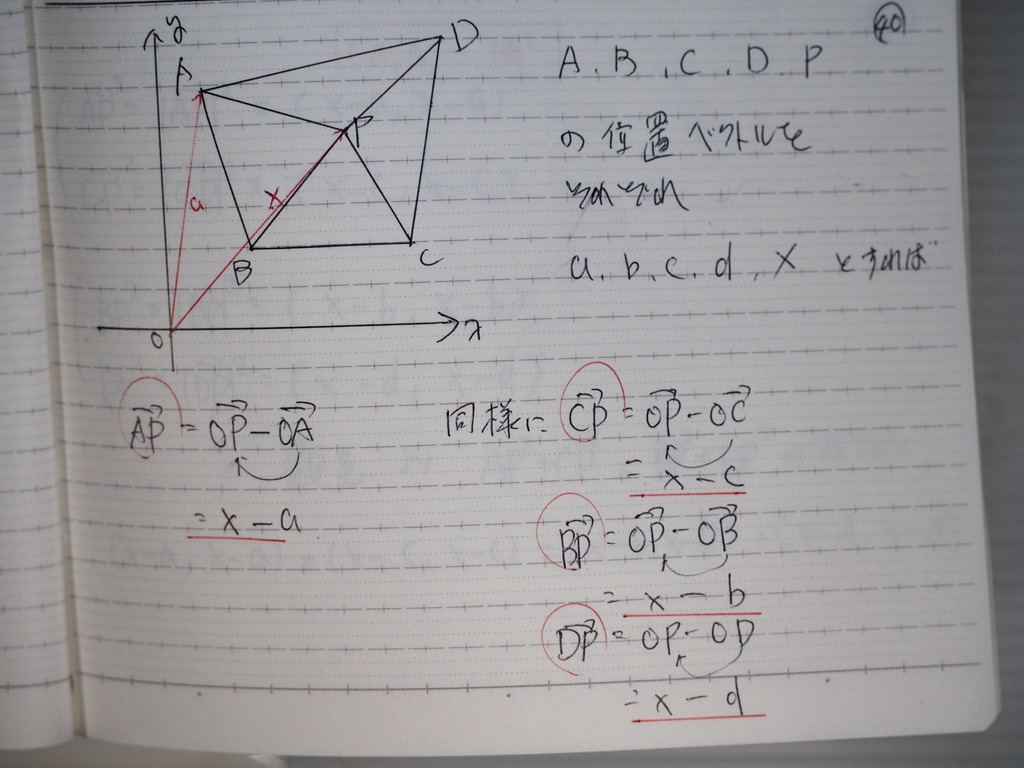 40
y
D
A
P
a
x
B
C
O
x
A. B. C. D. P
の位置ベクトルを
それぞれ
a. b. c. d. x とすれば
AP = OP - OA
= x - a
同様に CP = OP - OC
= x - c
BP = OP - OB
= x - b
DP = OP - OD
= x - d